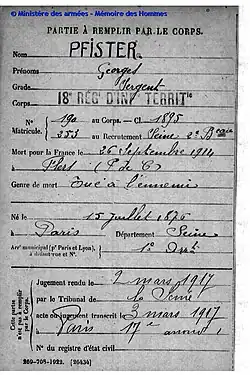 © Ministère des armées - Mémoire des Hommes
PARTIE À REMPLIR PAR LE CORPS.
Nom PFISTER
Prénoms Georges
Grade Sergent
Corps 18e RÉGt D'INFie TERRITle
N° 190 au Corps. — Cl. 1895
Matricule. 353 au Recrutement Seine 2e B
Mort pour la France le 26 Septembre 1914
à (P de C)
Genre de mort Tué à l'ennemi
Né le 15 juillet 1875
à Paris Département Seine
Arrt municipal (pr Paris et Lyon), 1er Arrt
à défaut rue et N°.
Cette partie
n'est pas à remplir
par le Corps.
Jugement rendu le 2 mars 1917
par le Tribunal de la Seine
acte ou jugement transcrit le 2 mars 1917
Paris 17e arrond
N° du registre d'état civil
269-708-1922. [26434]